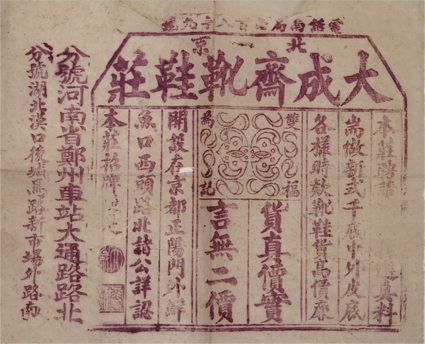 電話南局 百八十九號
北京
大成齋靴鞋莊
本莊 真料
耑緞新式千層牛列皮底
各樣時欵靴鞋貨高價亷
雙福
為記
貨真價實
言無二價
開設在京都正陽門外鮮
魚口西頭路北諸公詳認
本莊招牌
分號河南省鄭州車站大通路路北
分號湖北漢口後城馬路新市場外路南